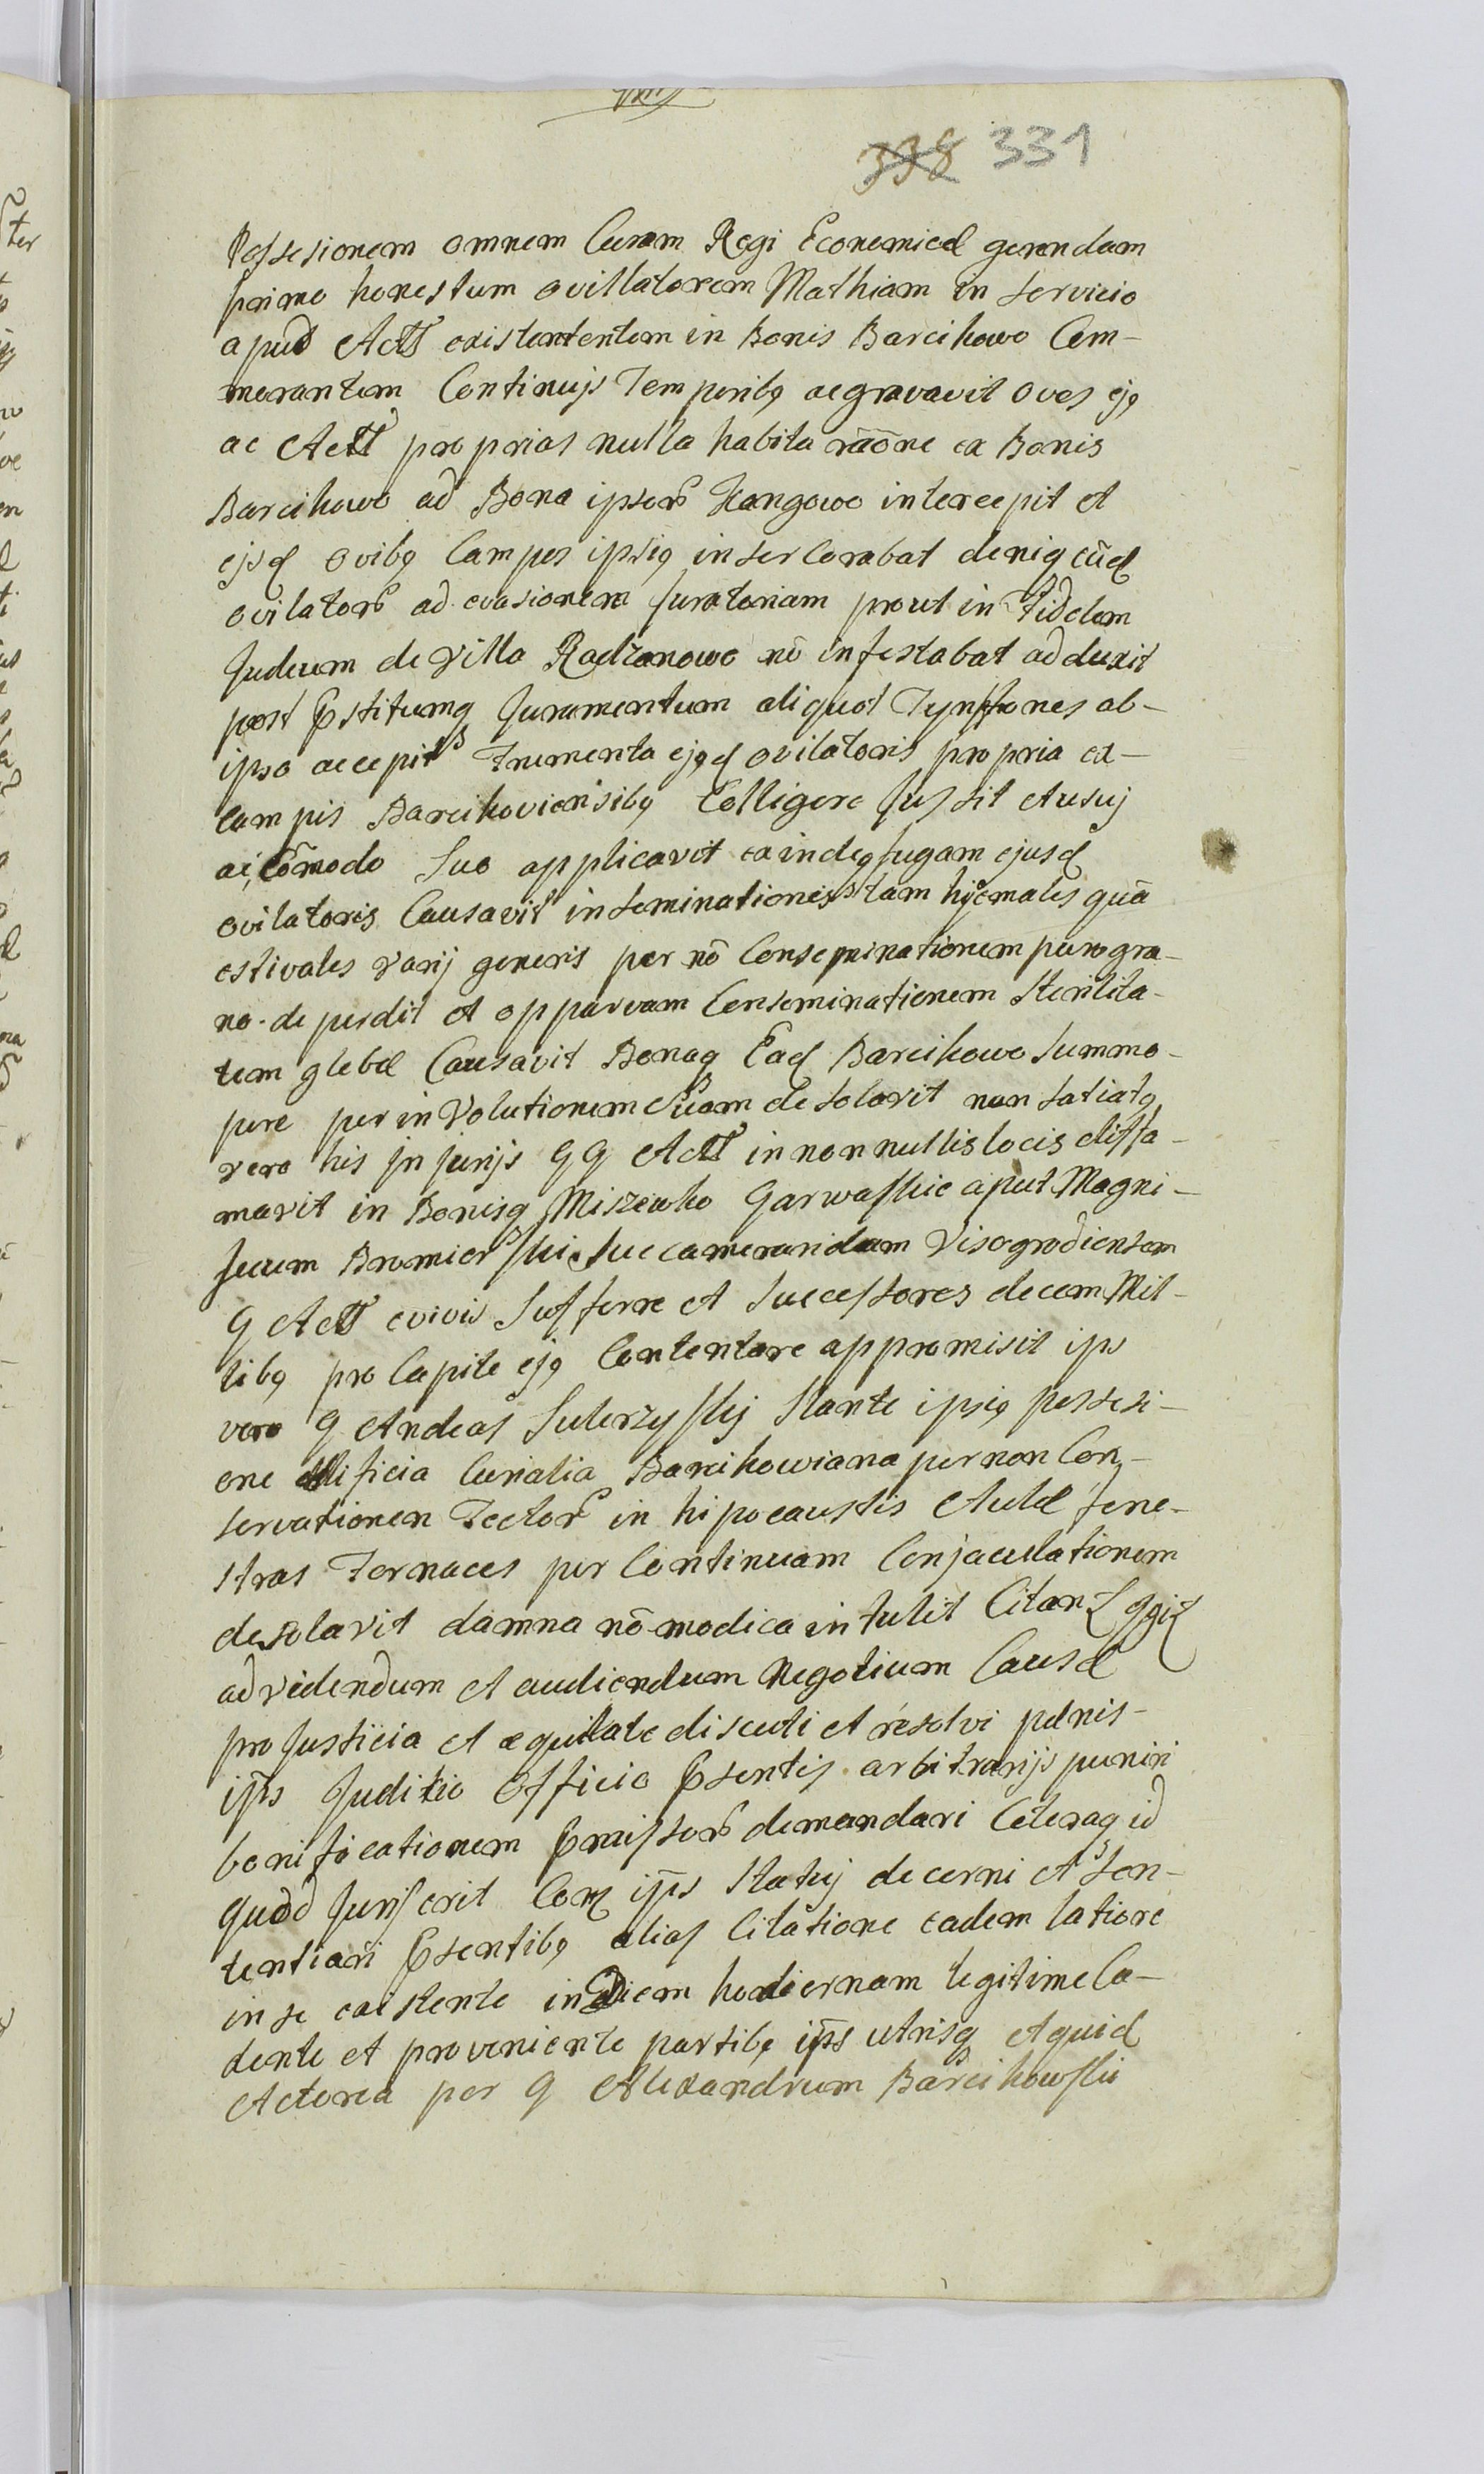 338 331
Possesionem omnem Curam Regi Economicæ gerendam
primo honestum ovillatorem Mathiam in servicio
apud Actt existententem in Bonis Barcikowo Com-
morantem Continuijs Temporibq aegravavit oves ejq
ac Actt proprias nulla habita rãone ex Bonis
Barcikowo ad Bona ipsor Kangowo intercepit et
ejsd ovibq Campos ipsiq instercorabat deniq eũd
ovilator ad evasionem Juratoriam prout in Fidelem
Judeum de Villa Radzanowo nõ infestabat adduxit
post pstitumq Juramentum aliquot Tynffones ab-
ipso accepit Frumenta ejqd ovilatoris propria ex-
campis Barcikoviensibq Colligere Jussit et usuj
ac cõmodo Suo applicavit exindeq fugam ejusd
ovilatoris Causavit inseminationes tam hyemales quã
estivales varij generis per nõ Conseminationem puro gra-
no deperdit et op parvam Conseminationem sterilita-
tem glebæ Causavit Bonaq Ead Barcikowo Summo-
pere per in Volutionem Suam desolavit non satiatq
vero his Injurijs GG Actt in nonnullis locis diffa-
mavit in Bonisq Miszewko Garwaskie aput Magni-
ficum Bromierski Succamerandum Visogrodiensem
G Actt e vivis Sufferre et Successores decem Mil-
libq pro Capite ejq Contentare appromisit ips
vero G Andeas Sulerzyskij Stante ipsiq possesi-
one ædificia Curialia Barcikowiana per non Con-
servationem Tector in hipocaustis Aulæ fene-
stras Fornaces per Continuam Conjaculationem
desolavit damna nõ modica intulit Citanr
ad videndum et audiendum Negotium Causæ
pro Justicia et æquitate discuti et resolvi pœnis-
ip̃s Juditio Officio psentis arbitrarijs puniri
bonificationem pmissor demandari Ceteraq id
quod Juris erit Com ip̃s Statuj decerni et Sen-
tentiari psentibq alias Citatione eadem latiore
in se existente in Diem hodiernam legitime Ca-
dente et proveniente partibq ip̃s utrisq et quid
Actorea per G Alexandrum Barcikowski